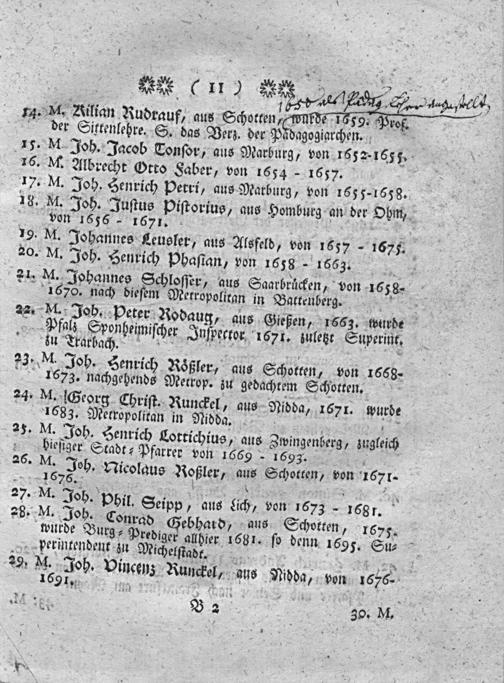 ( 11 )
1650 als Pädag. Lehrer angestellt
14. M. Kilian Rudrauf, aus Schotten, wurde 1659. Prof.
der Sittenlehre. S. das Verz. der Pädagogiarchen.
15. M. Joh. Jacob Tonsor, aus Marburg, von 1652-1655.
16. M. Albrecht Otto Faber, von 1654 - 1657.
17. M. Joh. Henrich Petri, aus Marburg, von 1655-1658.
18. M. Joh. Justus Pistorius, aus Homburg an der Ohm,
von 1656 - 1671.
19. M. Johannes Leusler, aus Alsfeld, von 1657 - 1675.
20. M. Joh. Henrich Phasian, von 1658 - 1663.
21. M. Johannes Schlosser, aus Saarbrücken, von 1658-
1670. nach diesem Metropolitan in Battenberg.
22. M. Joh. Peter Rodaug, aus Gießen, 1663. wurde
Pfalz Sponheimischer Inspector 1671. zuletzt Superint.
zu Trarbach.
23. M. Joh. Henrich Rößler, aus Schotten, von 1668-
1673. nachgehends Metrop. zu gedachtem Schotten.
24. M. Georg Christ. Runckel, aus Nidda, 1671. wurde
1683. Metropolitan in Nidda.
25. M. Joh. Henrich Lottichius, aus Zwingenberg, zugleich
hiesiger Stadt-Pfarrer von 1669 - 1693.
26. M. Joh. Nicolaus Roßler, aus Schotten, von 1671-
1676.
27. M. Joh. Phil. Seipp, aus Lich, von 1673 - 1681.
28. M. Joh. Conrad Gebhard, aus Schotten, 1675.
wurde Burg-Prediger allhier 1681. so denn 1695. Su-
perintendent zu Michelstadt.
29. M. Joh. Vincenz Runckel, aus Nidda, von 1676-
1691.
B 2
30. M.